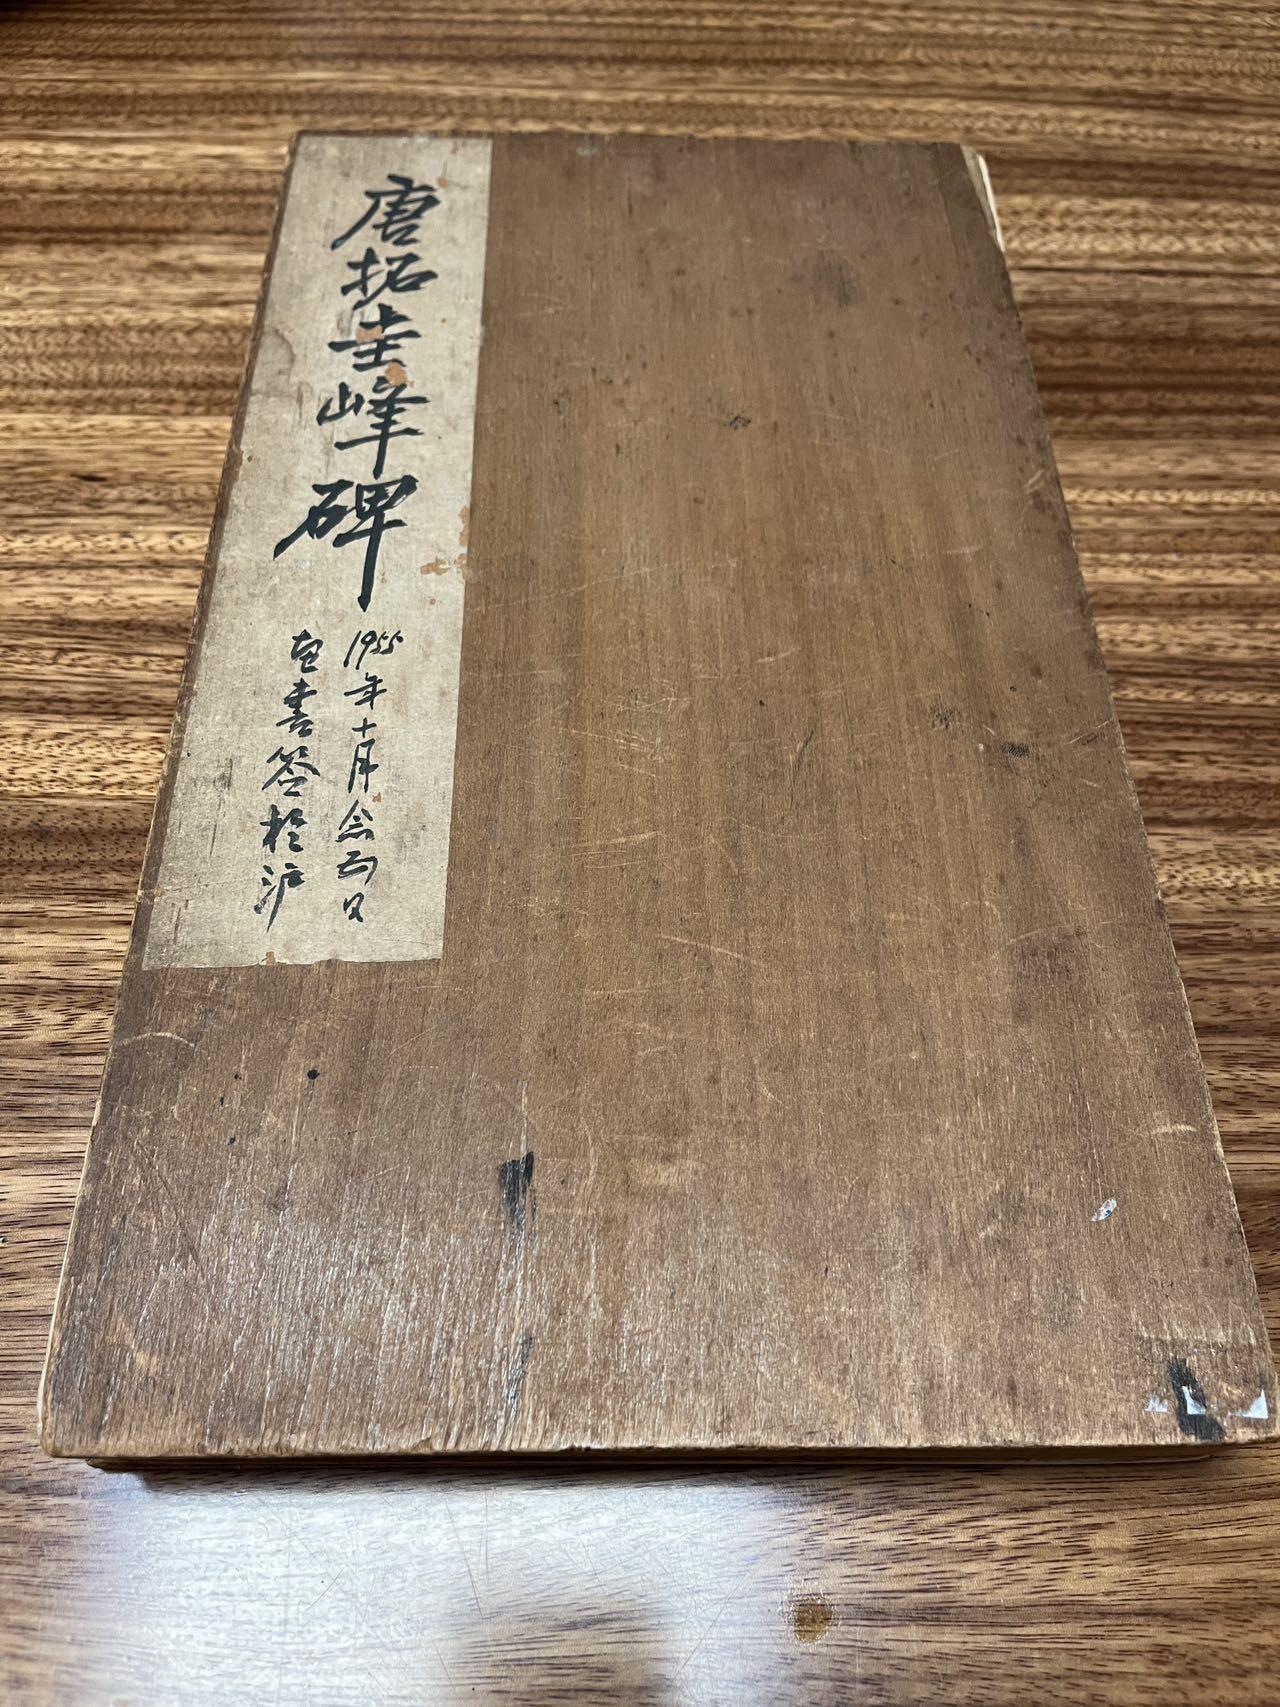 唐拓圭峰碑
1955年十月念五日
书签於沪